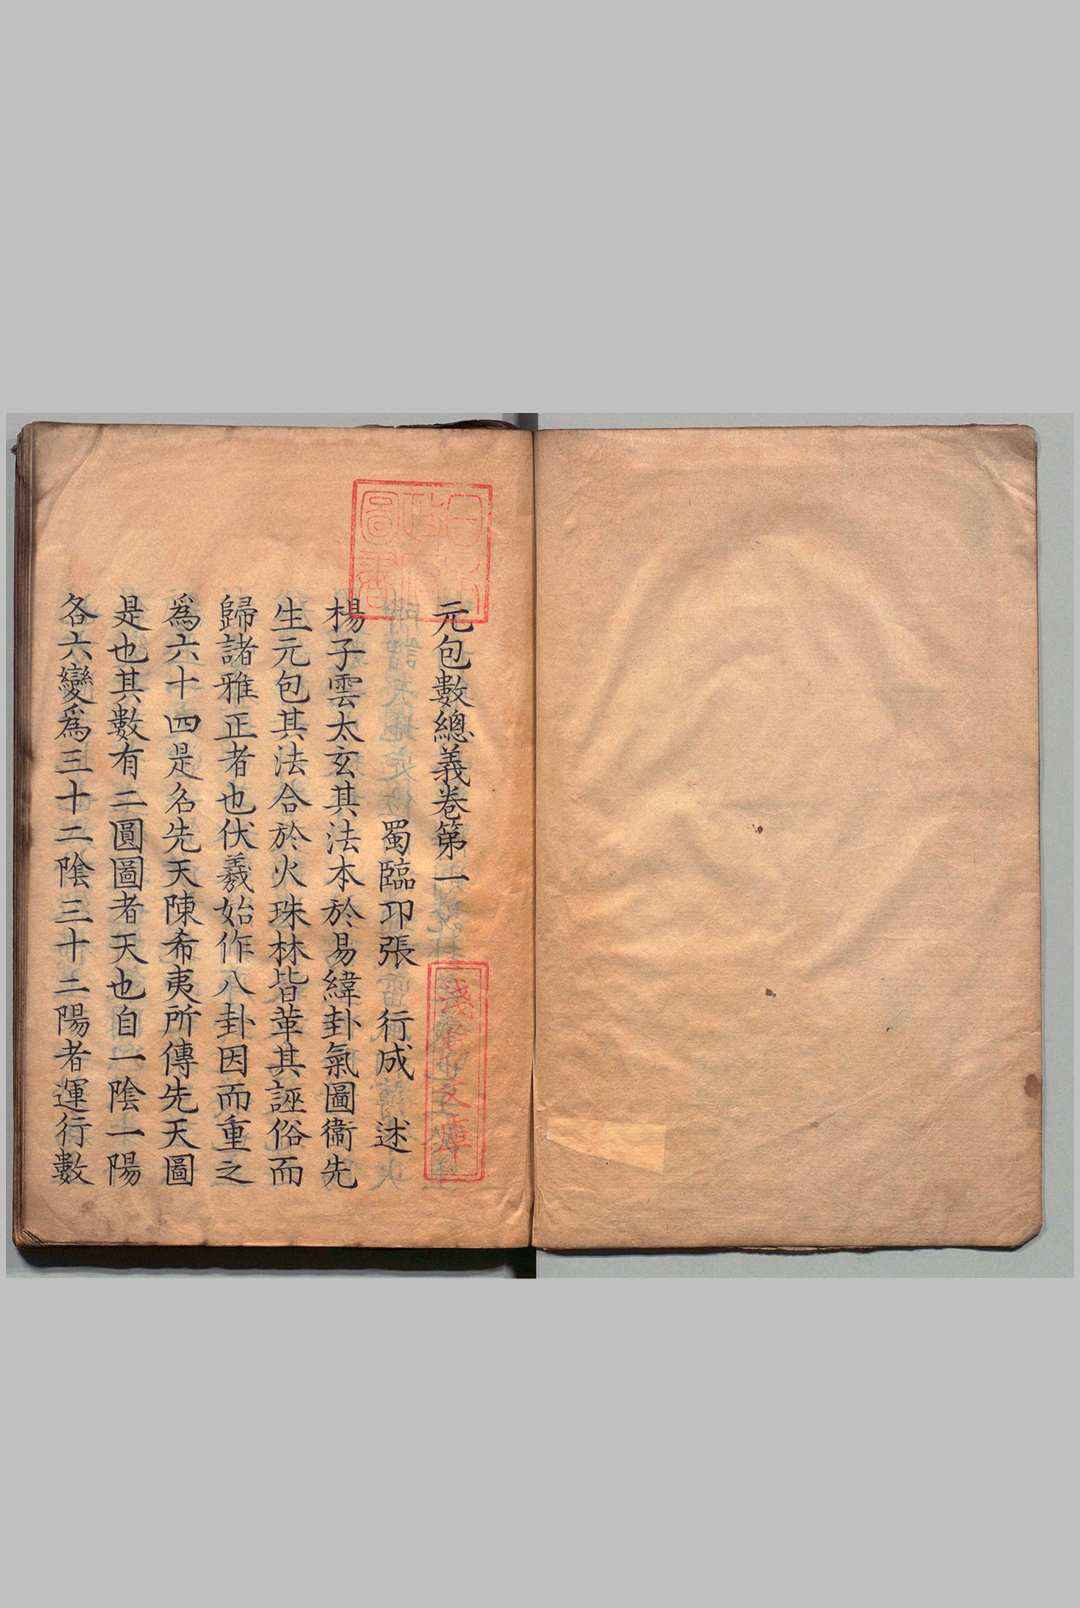 元包數總義卷第一
蜀臨卭張 行成 述
楊子雲太玄其法本於易緯卦氣圖衞先
生元包其法合於火珠林皆革其誣俗而
歸諸雅正者也伏羲始作八卦因而重之
爲六十四是名先天陳希夷所傳先天圖
是也其數有二圓圖者天也自一陰一陽
各六變爲三十二陰三十二陽者運行數
圖書
文庫